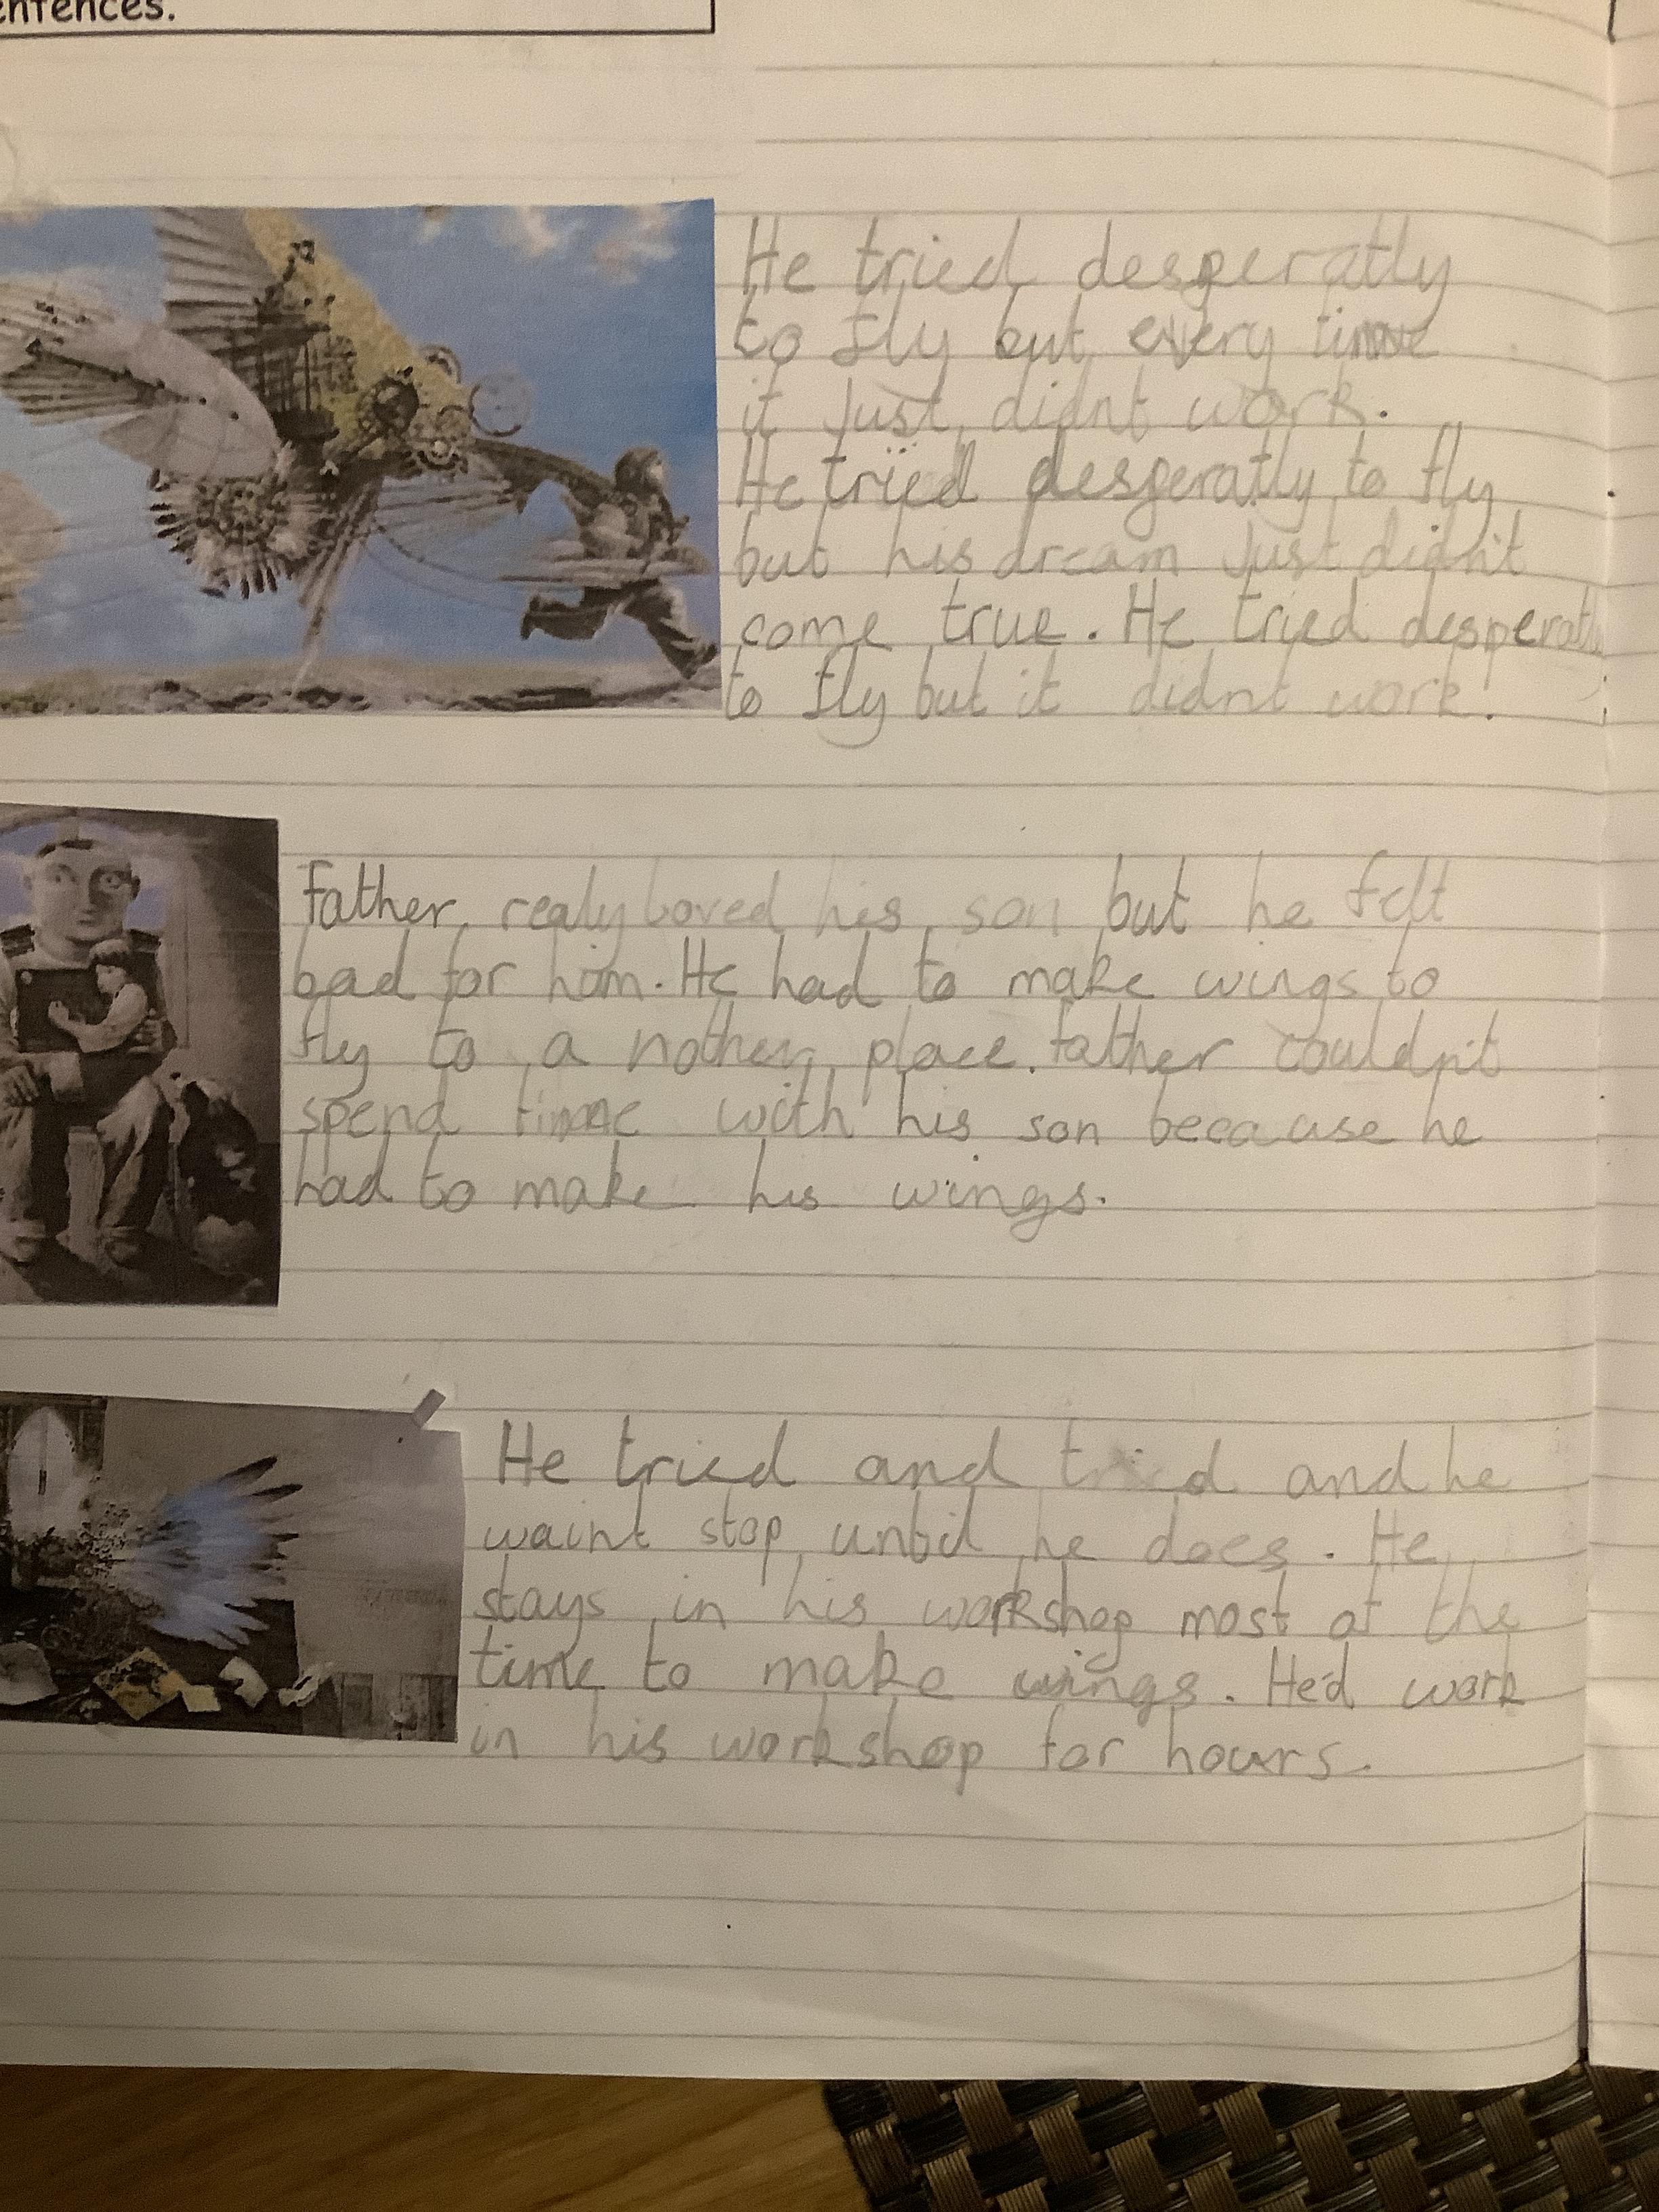 entences.
He tried desperatly
to fly but every time
it Just didnt work.
He tried desperatly to fly
but his dream Just didn't
come true. He tried desperatly
to fly but it didnt work.
Father realy loved his son but he felt
bad for him. He had to make wings to
fly to a nother place. Father couldn't
spend time with his son because he
had to make his wings.
He tried and tried and he
waint stop until he does. He
stays in his workshop most of the
time to make wings. He'd work
in his workshop for hours.